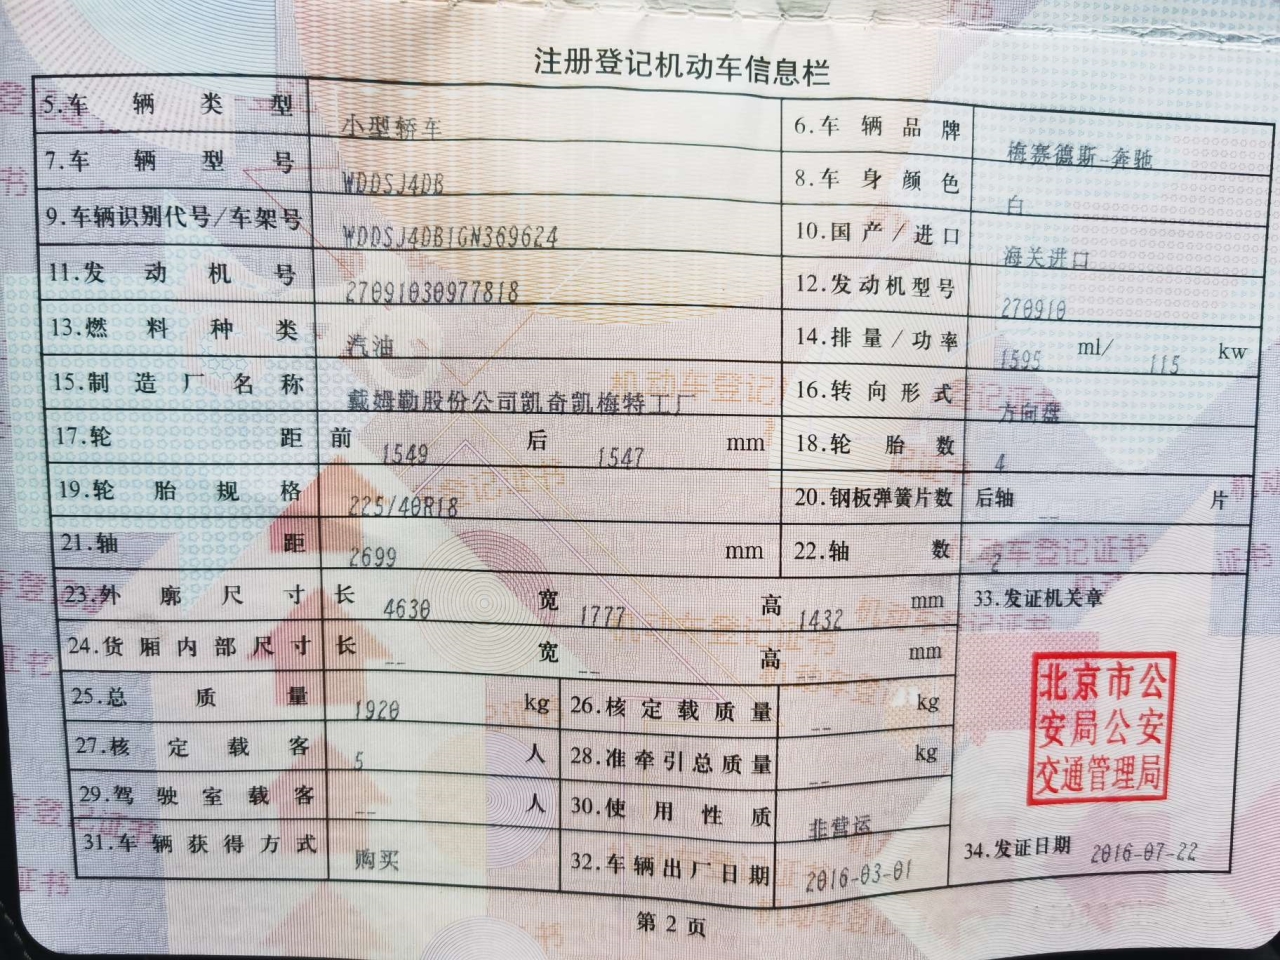 注册登记机动车信息栏
5.车辆类型 小型轿车 6.车辆品牌 梅赛德斯-奔驰
7.车辆型号 WDDSJ4DB 8.车身颜色 白
9.车辆识别代号/车架号 WDDSJ4DB1GN369624 10.国产/进口 海关进口
11.发动机号 27091030977818 12.发动机型号 270910
13.燃料种类 汽油 14.排量/功率 1595 ml/ 115 kw
15.制造厂名称 戴姆勒股份公司凯奇凯梅特工厂 16.转向形式 方向盘
17.轮距 前 1549 后 1547 mm 18.轮胎数 4
19.轮胎规格 225/40R18 20.钢板弹簧片数 后轴 -- 片
21.轴距 2699 mm 22.轴数 2
23.外廓尺寸 长 4630 宽 1777 高 1432 mm 33.发证机关章
24.货厢内部尺寸 长 -- 宽 -- 高 -- mm
25.总质量 1920 kg 26.核定载质量 -- kg
27.核定载客 5 人 28.准牵引总质量 -- kg
29.驾驶室载客 -- 人 30.使用性质 非营运
31.车辆获得方式 购买 32.车辆出厂日期 2016-03-01 34.发证日期 2016-07-22
北京市公
安局公安
交通管理局
第2页